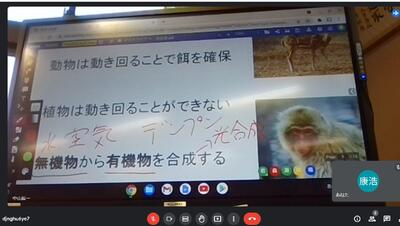 動物は動き回ることで餌を確保
植物は動き回ることができない
水 空気 デンプン
光合成
無機物から有機物を合成する
康浩
あなた
djnghutiye7